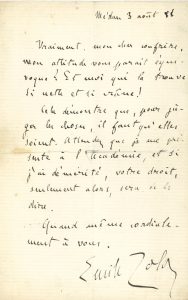 Médan 3 août 86
Vraiment, mon cher confrère,
mon attitude vous paraît équi-
voque? Et moi qui la trouve
si nette et si crâne!
Cela démontre que, pour ju-
ger les choses, il faut qu'elles
soient. Attendez que je me pré-
sente à l'Académie, et si
j'ai démérité, votre droit,
seulement alors, sera de le
dire.
Quand même cordiale-
ment à vous.
Emile Zola